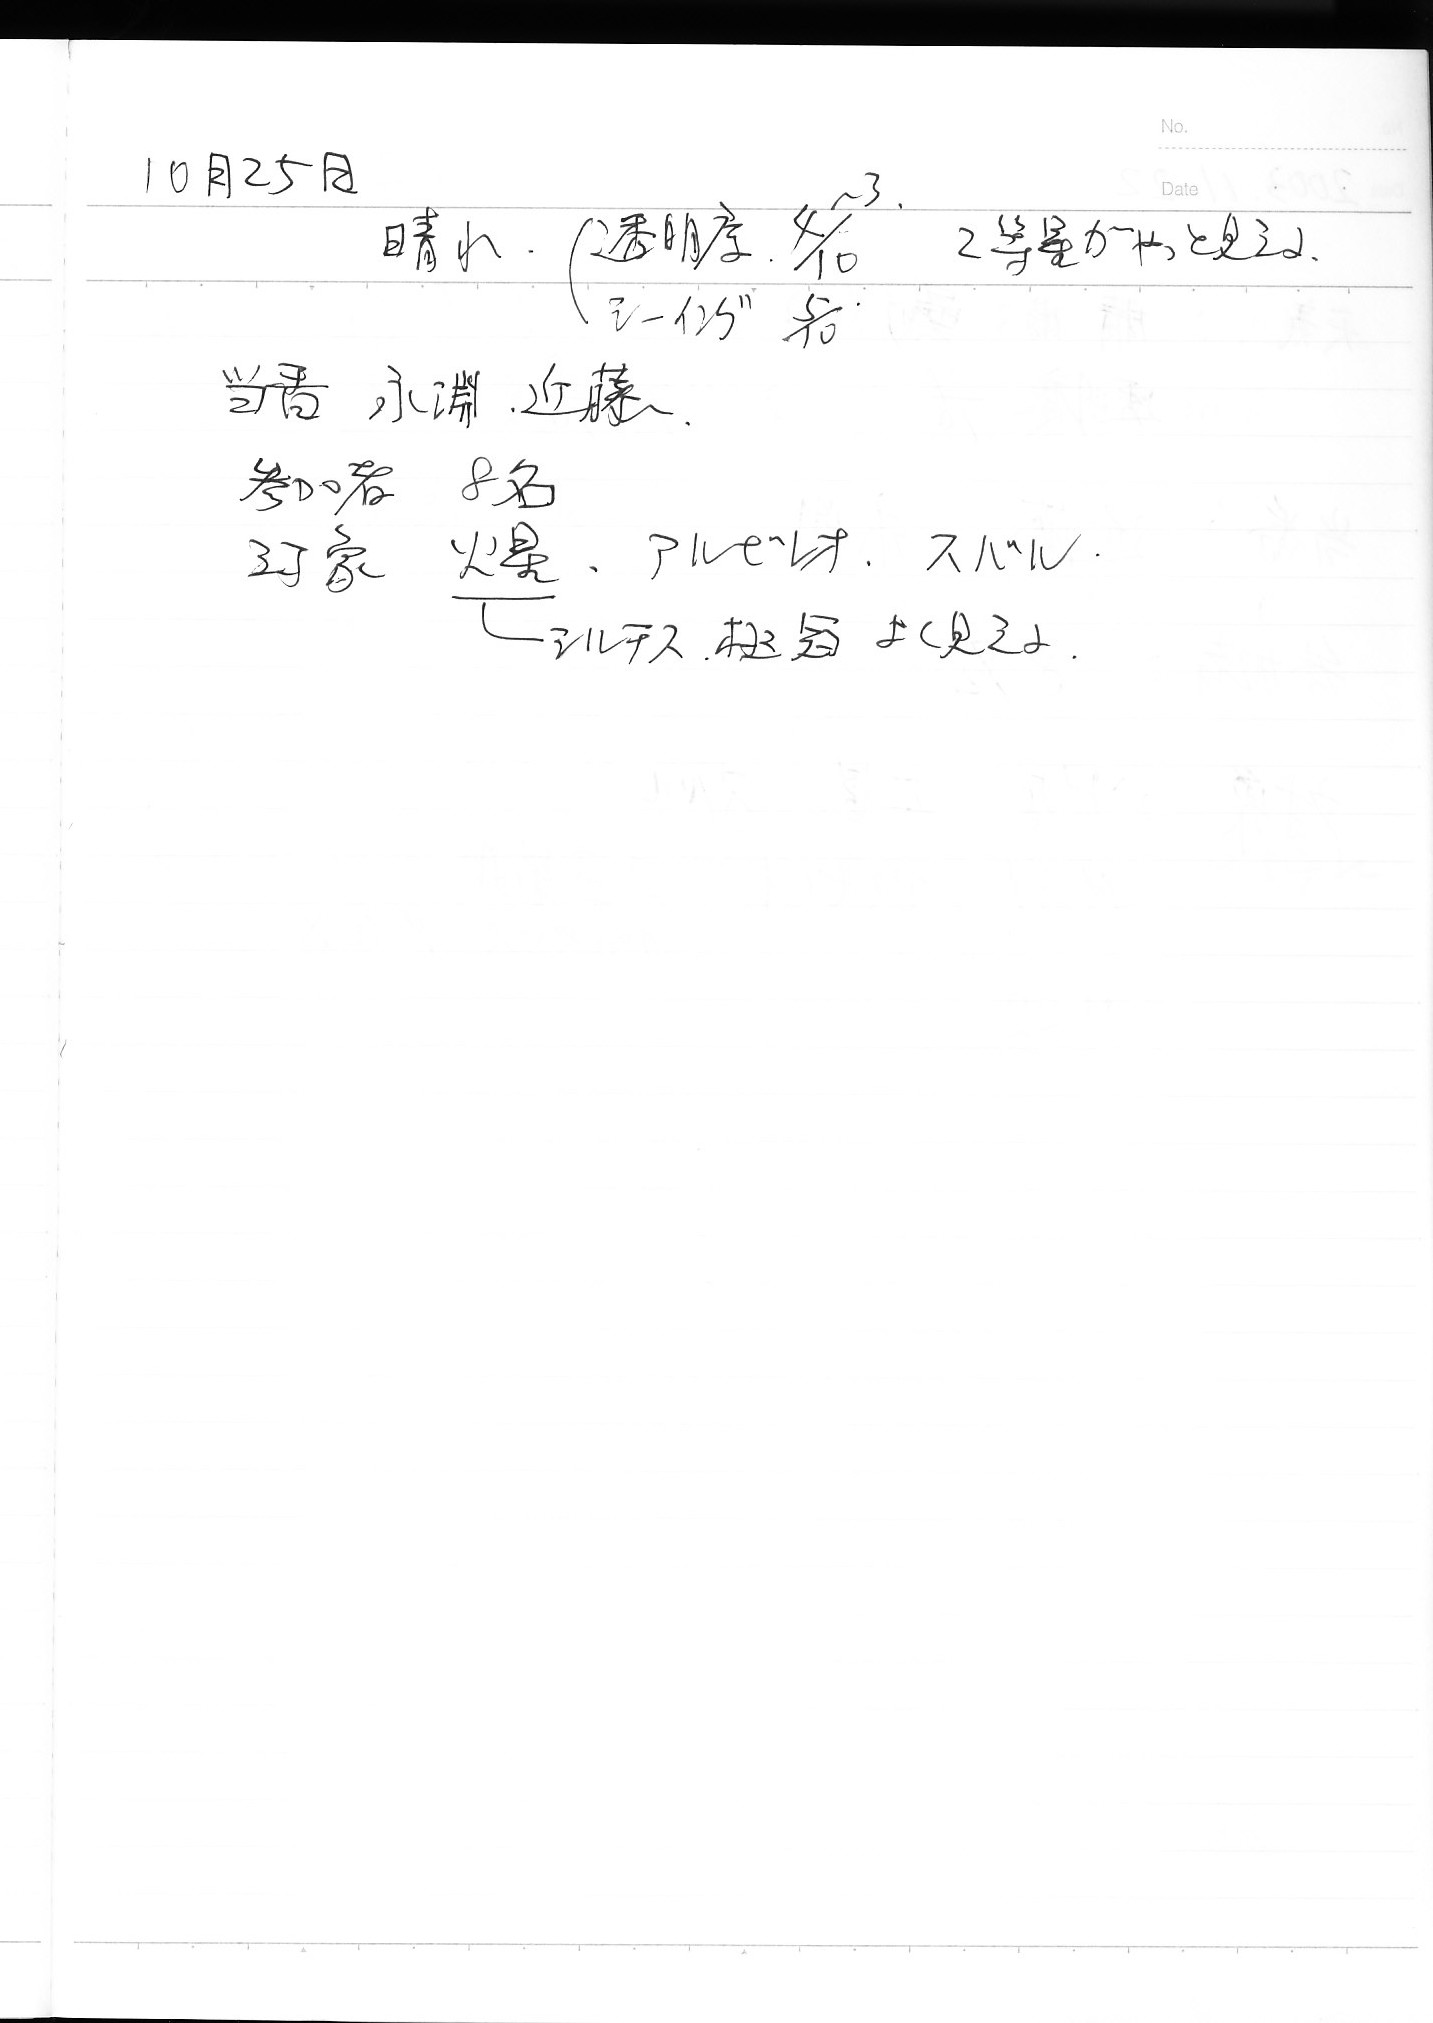 No.
Date
10月25日
晴れ. (透明度. 4/10 ~3. 2等星がやっと見える.
シーイング 5/10.
当番 永淵. 近藤.
参加者 8名
対象 火星、アルビレオ. スバル.
シルチス. 極冠 よく見える.